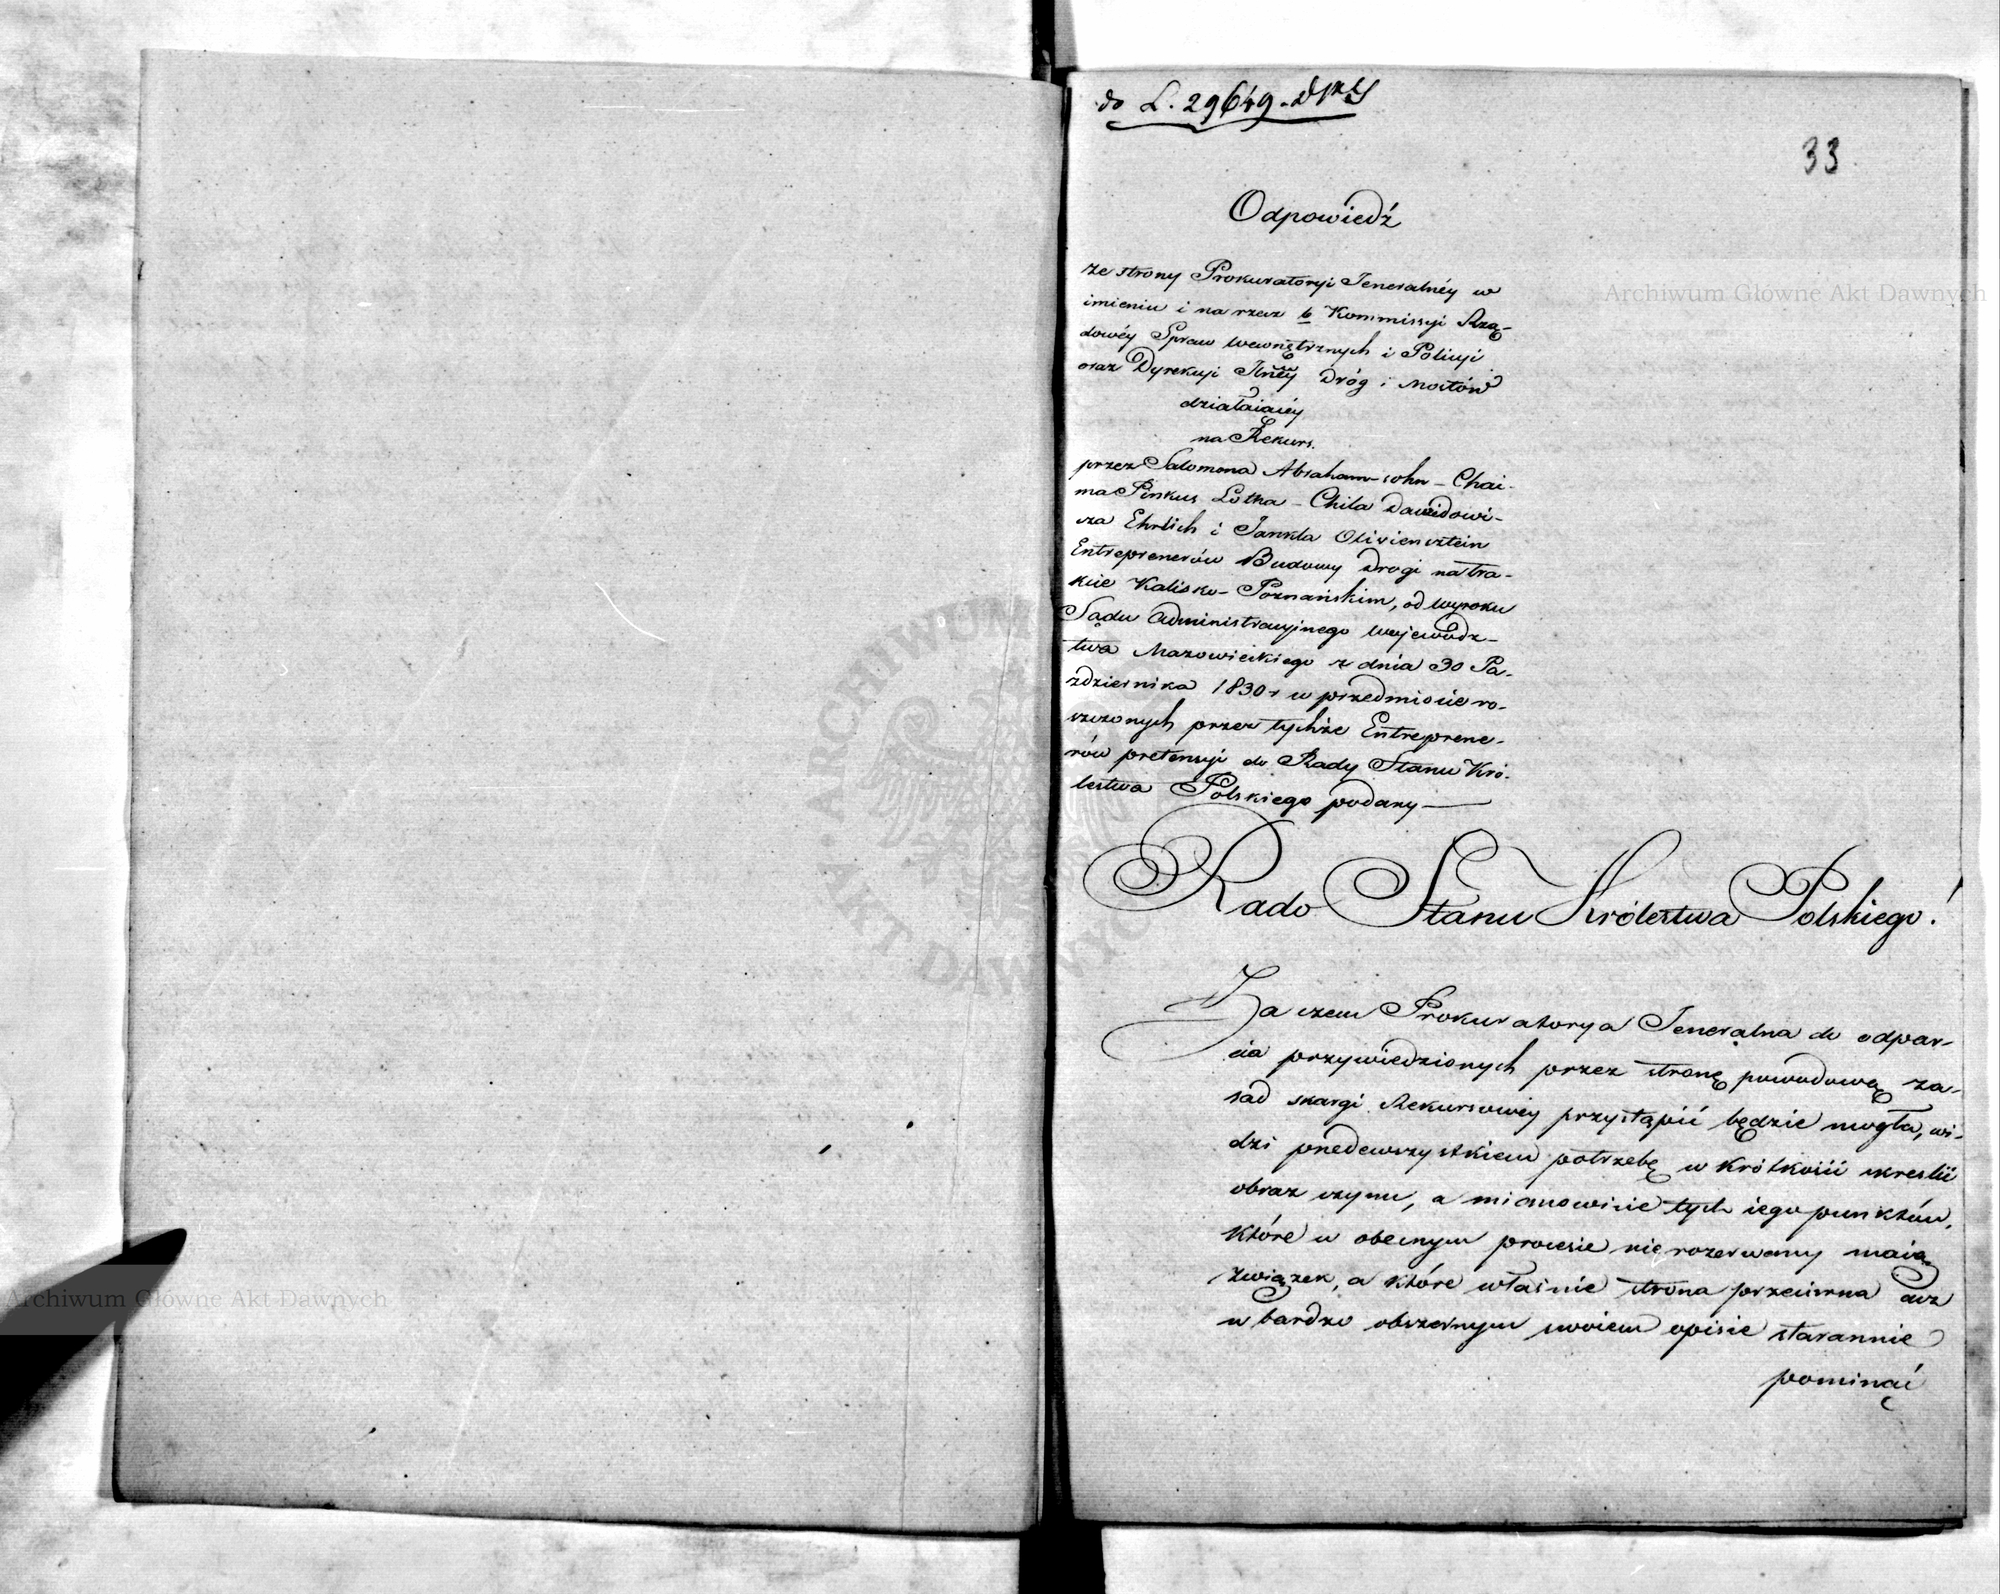 do L. 29649.
33
Odpowiedź
ze strony Prokuratoryi Jeneralnéy w
imieniu i na rzecz b. Kommissyi Rzą-
dowéy Spraw Wewnętrznych i Policyi
oraz Dyrekcyi Jlnéy Dróg i Mostów
działaiącéy
na Rekurs.
przez Salomona Abrahamsohn - Chai-
ma Pinkus Lotka - Chila Dawidowi-
cza Ehrlich i Jankla Oliviensztein
Entreprenerów Budowy Drogi na tra-
kcie Kalisko-Poznańskim, od wyroku
Sądu Administracyjnego Wojewódz-
twa Mazowieckiego z dnia 30 Pa-
ździernika 1830 r w przedmiocie ro-
szczonych przez tychże Entreprene-
rów pretensyi do Rady Stanu Kró-
lestwa Polskiego podany
Rado Stanu Królestwa Polskiego!
Za czem Prokuratorya Jeneralna do odpar-
cia przywiedzionych przez stronę powodową za-
sad skargi Rekursowéy przystąpić będzie mogła, wi-
dzi przedewszystkiem potrzebę w krótkości skreślić
obraz czynu, a mianowicie tych iego punktów,
które w obecnym procesie nierozerwany maią
związek, a które właśnie strona przeciwna acz
w bardzo obszernym swoiem opisie starannie
pominąć
Archiwum Główne Akt Dawnych
Archiwum Główne Akt Dawnych
ARCHIWUM
AKT DAWNYCH